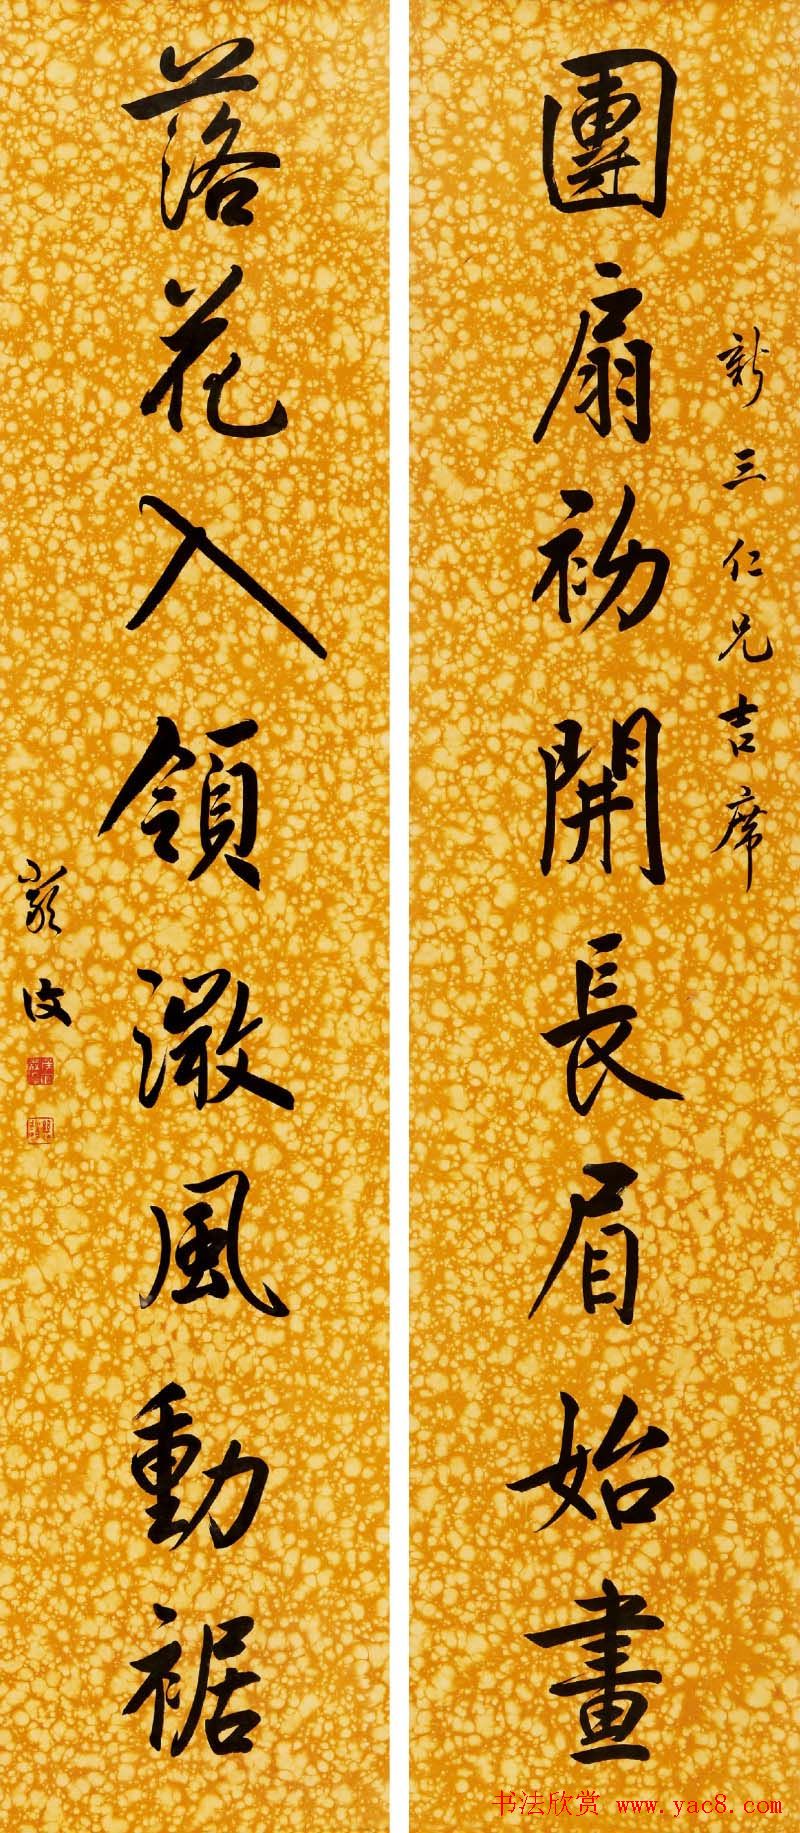 新三仁兄吉席
團扇初開長眉始畫
落花入領微風動裾
书法欣赏 www.yac8.com